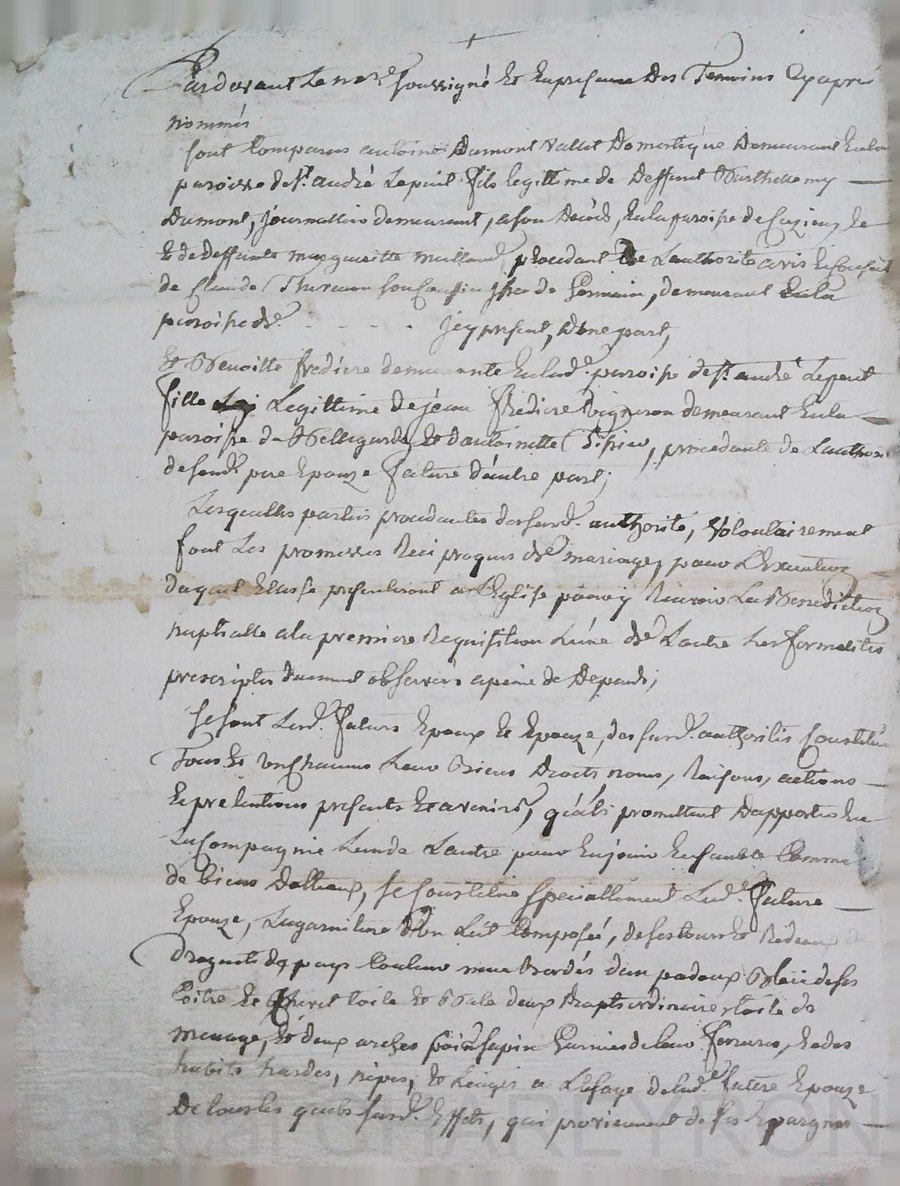 Pardevant Le no.re soussigné Et En presence Des Temoins Cy apres
nommés
sont Comparus antoine Dumont Vallet Domestique Demeurant En la
paroisse de St. andré Le puit fils legittime de Deffunt Barthellemy
Dumont, journallier demeurant, a son Decéd, En la paroisse de
Et de Deffunte margueritte procedant De L'authorité avis Et Conseil
de Claude son Cousin de Germain, demeurant En la
paroisse de . . . . . jcy present, D'une part,
Et Benoitte fredière demeurante En lad.e paroisse de St. andré Le puit
fille Legittime De jean fredière Vigneron demeurant En la
paroisse de Bellegarde Et d'antoinette procedante de L'authorité
de sond. pere Epouze future d'autre part;
Lesquelles parties procedantes de susd. authorité, Volontairement
font Les promesses Reciproques de mariage, pour L'Execution
duquel Elles se presenteront a L'Eglise pour y Recevoir La Benediction
nuptialle a la premiere Requisition L'une de L'autre Les formalités
prescriptes duement observées a peine de Depends,
Se sont Lesd. futurs Epoux Et Epouze, des susd. authorités Constitué
Tous Et Un chacuns Leur Biens Droits noms, Raisons, actions
Et pretentions presents Et avenirs, qu'ils promettent D'apporter En
La Compagnie L'un de L'autre pour En jouir Ensemble Comme
de biens Dottaux, se Constitue speciallement Lad.e future
Epouze, La garniture D'un Lit Composée, de ses tours Et Rideaux
Droguets de pays Couleur Bordés d'un padoux
Coitre Et Chevet toile Et Bale deux Draps ordinaires toile de
menage, Et deux arches bois sapin Garnies de Leur ferrures, Et des
habits hardes, nipes, Et Linges a L'usage de Lad.e future Epouze
De tous Les quels susd. Effets, qui proviennent de ses Epargnes
Pascal CHARLEYRON